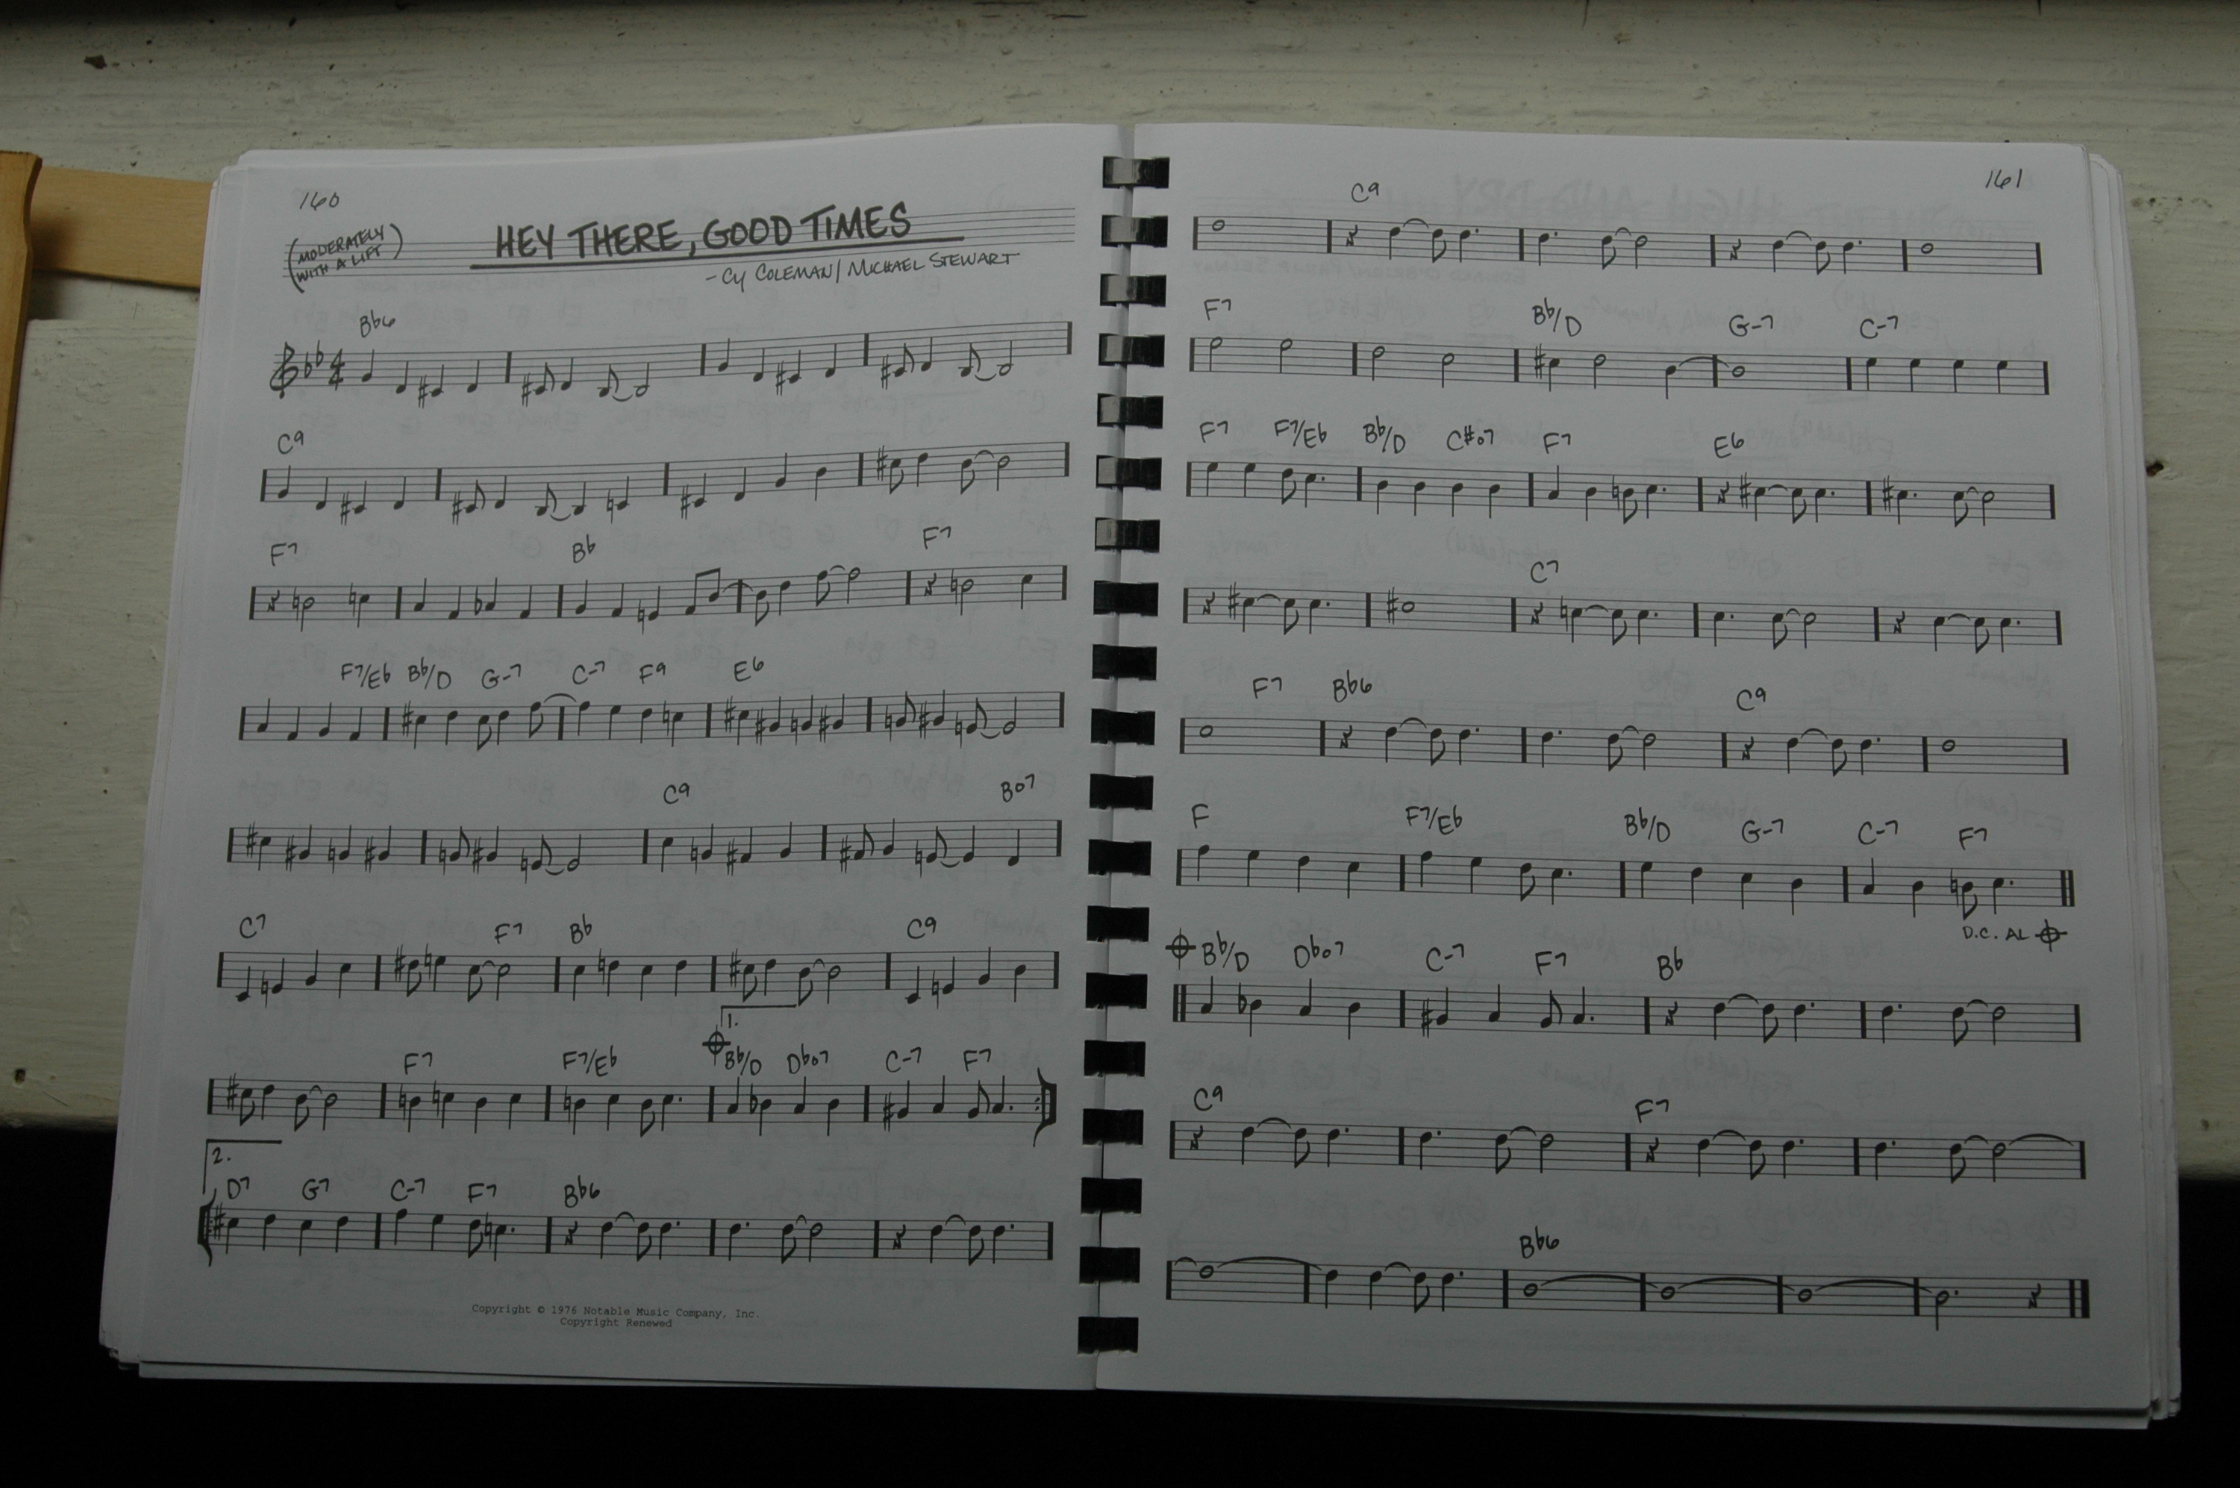 160
(MODERATELY
WITH A LIFT)
HEY THERE, GOOD TIMES
- CY COLEMAN/MICHAEL STEWART
Bb6
4
4
C9
F7 Bb F7
F7/Eb Bb/D G-7 C-7 F9 E6
C9 Bo7
C7 F7 Bb C9
1.
F7 F7/Eb Bb/D Dbo7 C-7 F7
2.
D7 G7 C-7 F7 Bb6
Copyright © 1976 Notable Music Company, Inc.
Copyright Renewed
161
C9
F7 Bb/D G-7 C-7
F7 F7/Eb Bb/D C#o7 F7 E6
C7
F7 Bb6 C9
F F7/Eb Bb/D G-7 C-7 F7
D.C. AL
Bb/D Dbo7 C-7 F7 Bb
C9 F7
Bb6